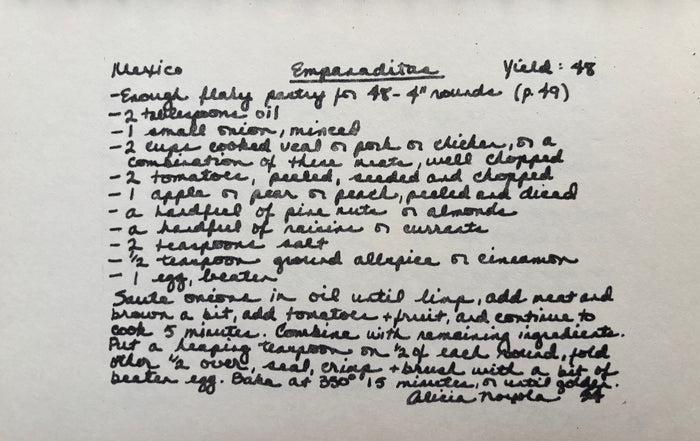 Mexico Empanaditas Yield: 48
- Enough flaky pastry for 48 - 4" rounds (p. 49)
- 2 tablespoons oil
- 1 small onion, minced
- 2 cups cooked veal or pork or chicken, or a
combination of these meats, well chopped
- 2 tomatoes, peeled, seeded and chopped
- 1 apple or pear or peach, peeled and diced
- a handful of pine nuts or almonds
- a handful of raisins or currants
- 2 teaspoons salt
- 1/2 teaspoon ground allspice or cinnamon
- 1 egg, beaten
Saute onions in oil until limp, add meat and
brown a bit, add tomatoes + fruit, and continue to
cook 5 minutes. Combine with remaining ingredients.
Put a heaping teaspoon on 1/2 of each round, fold
other 1/2 over, seal, crimp + brush with a bit of
beaten egg. Bake at 350° 15 minutes, or until golden.
Alicia Noyola 54